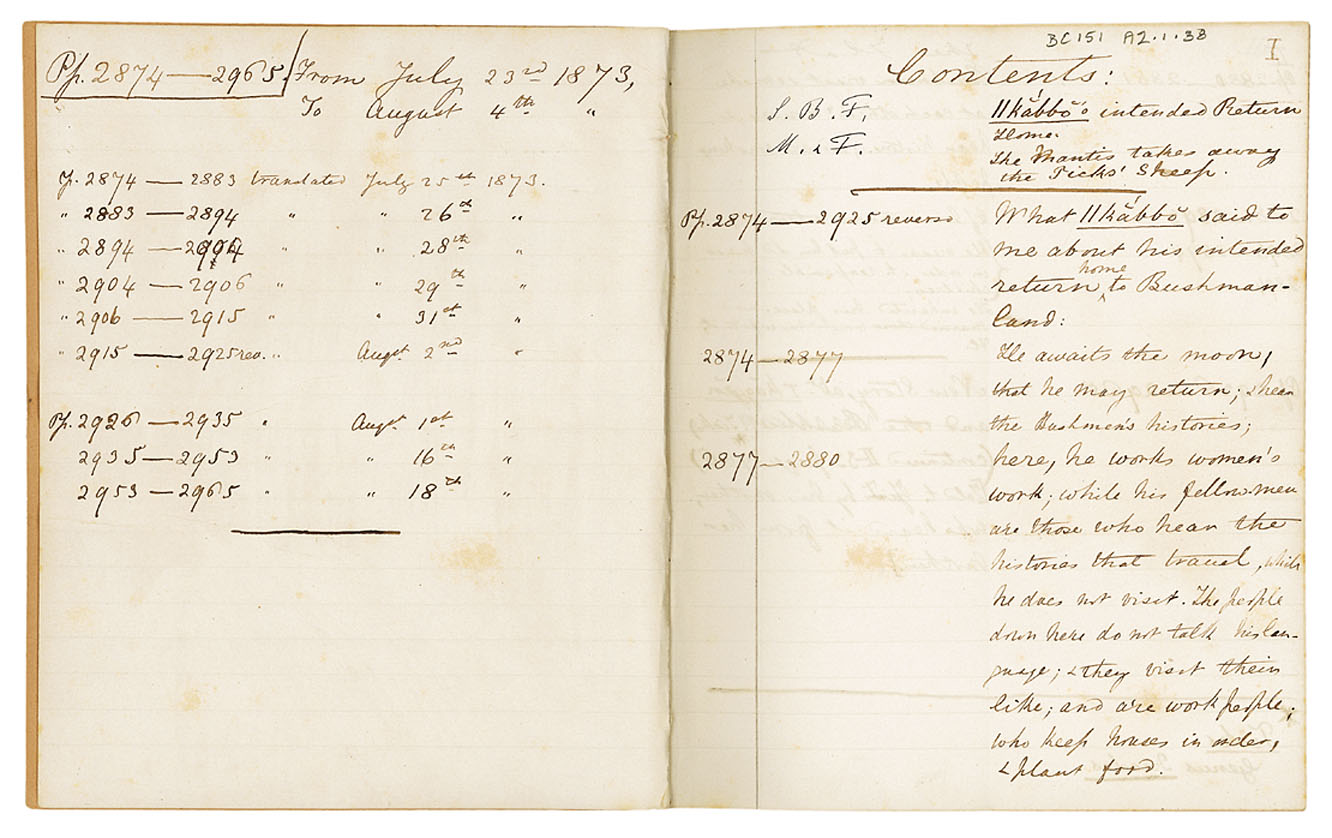 Pp. 2874 — 2965. From July 23rd 1873,
To August 4th "
p. 2874 — 2883 translated July 25th 1873.
" 2883 — 2894 " " 26th "
" 2894 — 2904 " " 28th "
" 2904 — 2906 " " 29th "
" 2906 — 2915 " " 31st "
" 2915 — 2925 rev. " Augst 2nd "
Pp. 2926 — 2935 " Augst 1st "
2935 — 2953 " " 16th "
2953 — 2965 " " 18th "
BC151 A2.1.38
I
Contents:
S. B. F. ||kábbŏ's intended Return
Home.
M. & F. The Mantis takes away
the Ticks' Sheep.
Pp. 2874 — 2925 reverso What ||kábbŏ said to
me about his intended
return home to Bushman-
land:
2874 — 2877 He awaits the moon,
that he may return; & hear
the Bushmen's histories;
2877 — 2880 here, he works women's
work; while his fellow-men
are those who hear the
histories that travel, while
he does not visit. The people
down here do not talk his lan-
guage; & they visit their
like; and are work people;
who keep houses in order,
& plant food.